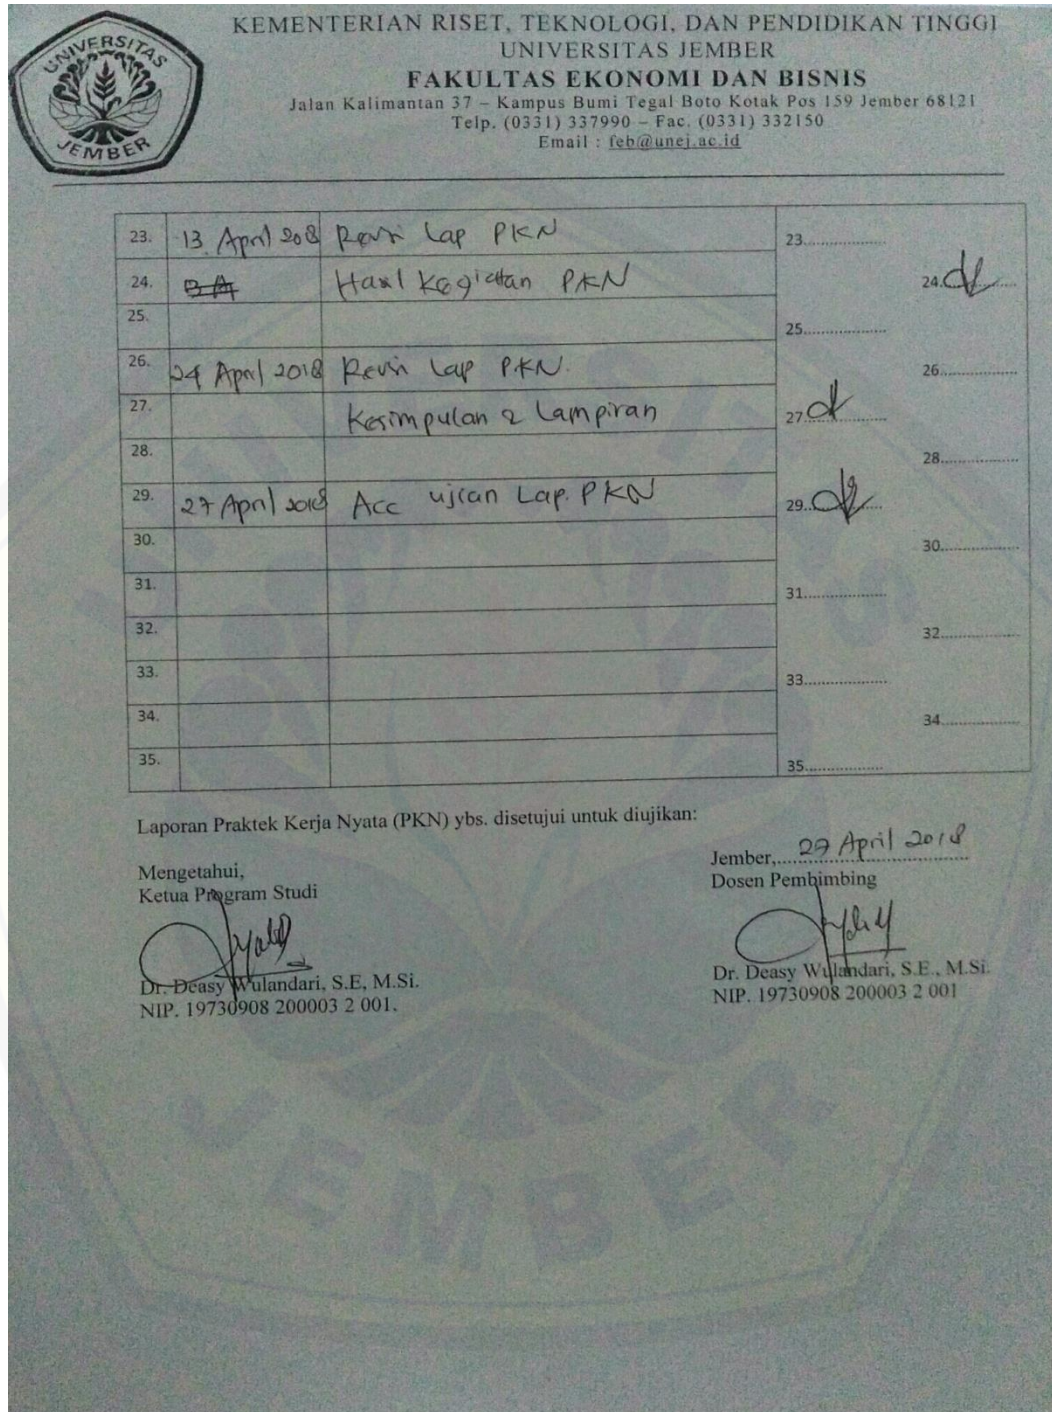 UNIVERSITAS
JEMBER
KEMENTERIAN RISET, TEKNOLOGI, DAN PENDIDIKAN TINGGI
UNIVERSITAS JEMBER
FAKULTAS EKONOMI DAN BISNIS
Jalan Kalimantan 37 – Kampus Bumi Tegal Boto Kotak Pos 159 Jember 68121
Telp. (0331) 337990 – Fac. (0331) 332150
Email : feb@unej.ac.id
23. 13 April 2018 Revisi Lap PKN 23..................
24. Hasil Kegiatan PKN 24..................
25. 25..................
26. 24 April 2018 Revisi Lap PKN. 26..................
27. Kesimpulan & Lampiran 27..................
28. 28..................
29. 27 April 2018 Acc ujian Lap. PKN 29..................
30. 30..................
31. 31..................
32. 32..................
33. 33..................
34. 34..................
35. 35..................
Laporan Praktek Kerja Nyata (PKN) ybs. disetujui untuk diujikan:
Jember, 27 April 2018
Mengetahui,
Ketua Program Studi
Dosen Pembimbing
Dr. Deasy Wulandari, S.E, M.Si.
NIP. 19730908 200003 2 001.
Dr. Deasy Wulandari, S.E., M.Si.
NIP. 19730908 200003 2 001
JEMBER